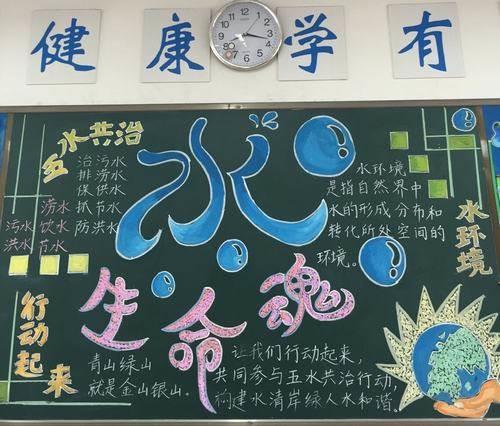 健 康 学 有
五水共治
治污水
排涝水
保供水
涝水 抓节水
污水 饮水 防洪水
洪水 节水
水
生命魂
水环境
是指自然界中
水的形成分布和
转化所处空间的
环境。
水环境
行动起来
青山绿山
就是金山银山。
让我们行动起来,
共同参与五水共治行动,
构建水清岸绿人水和谐。